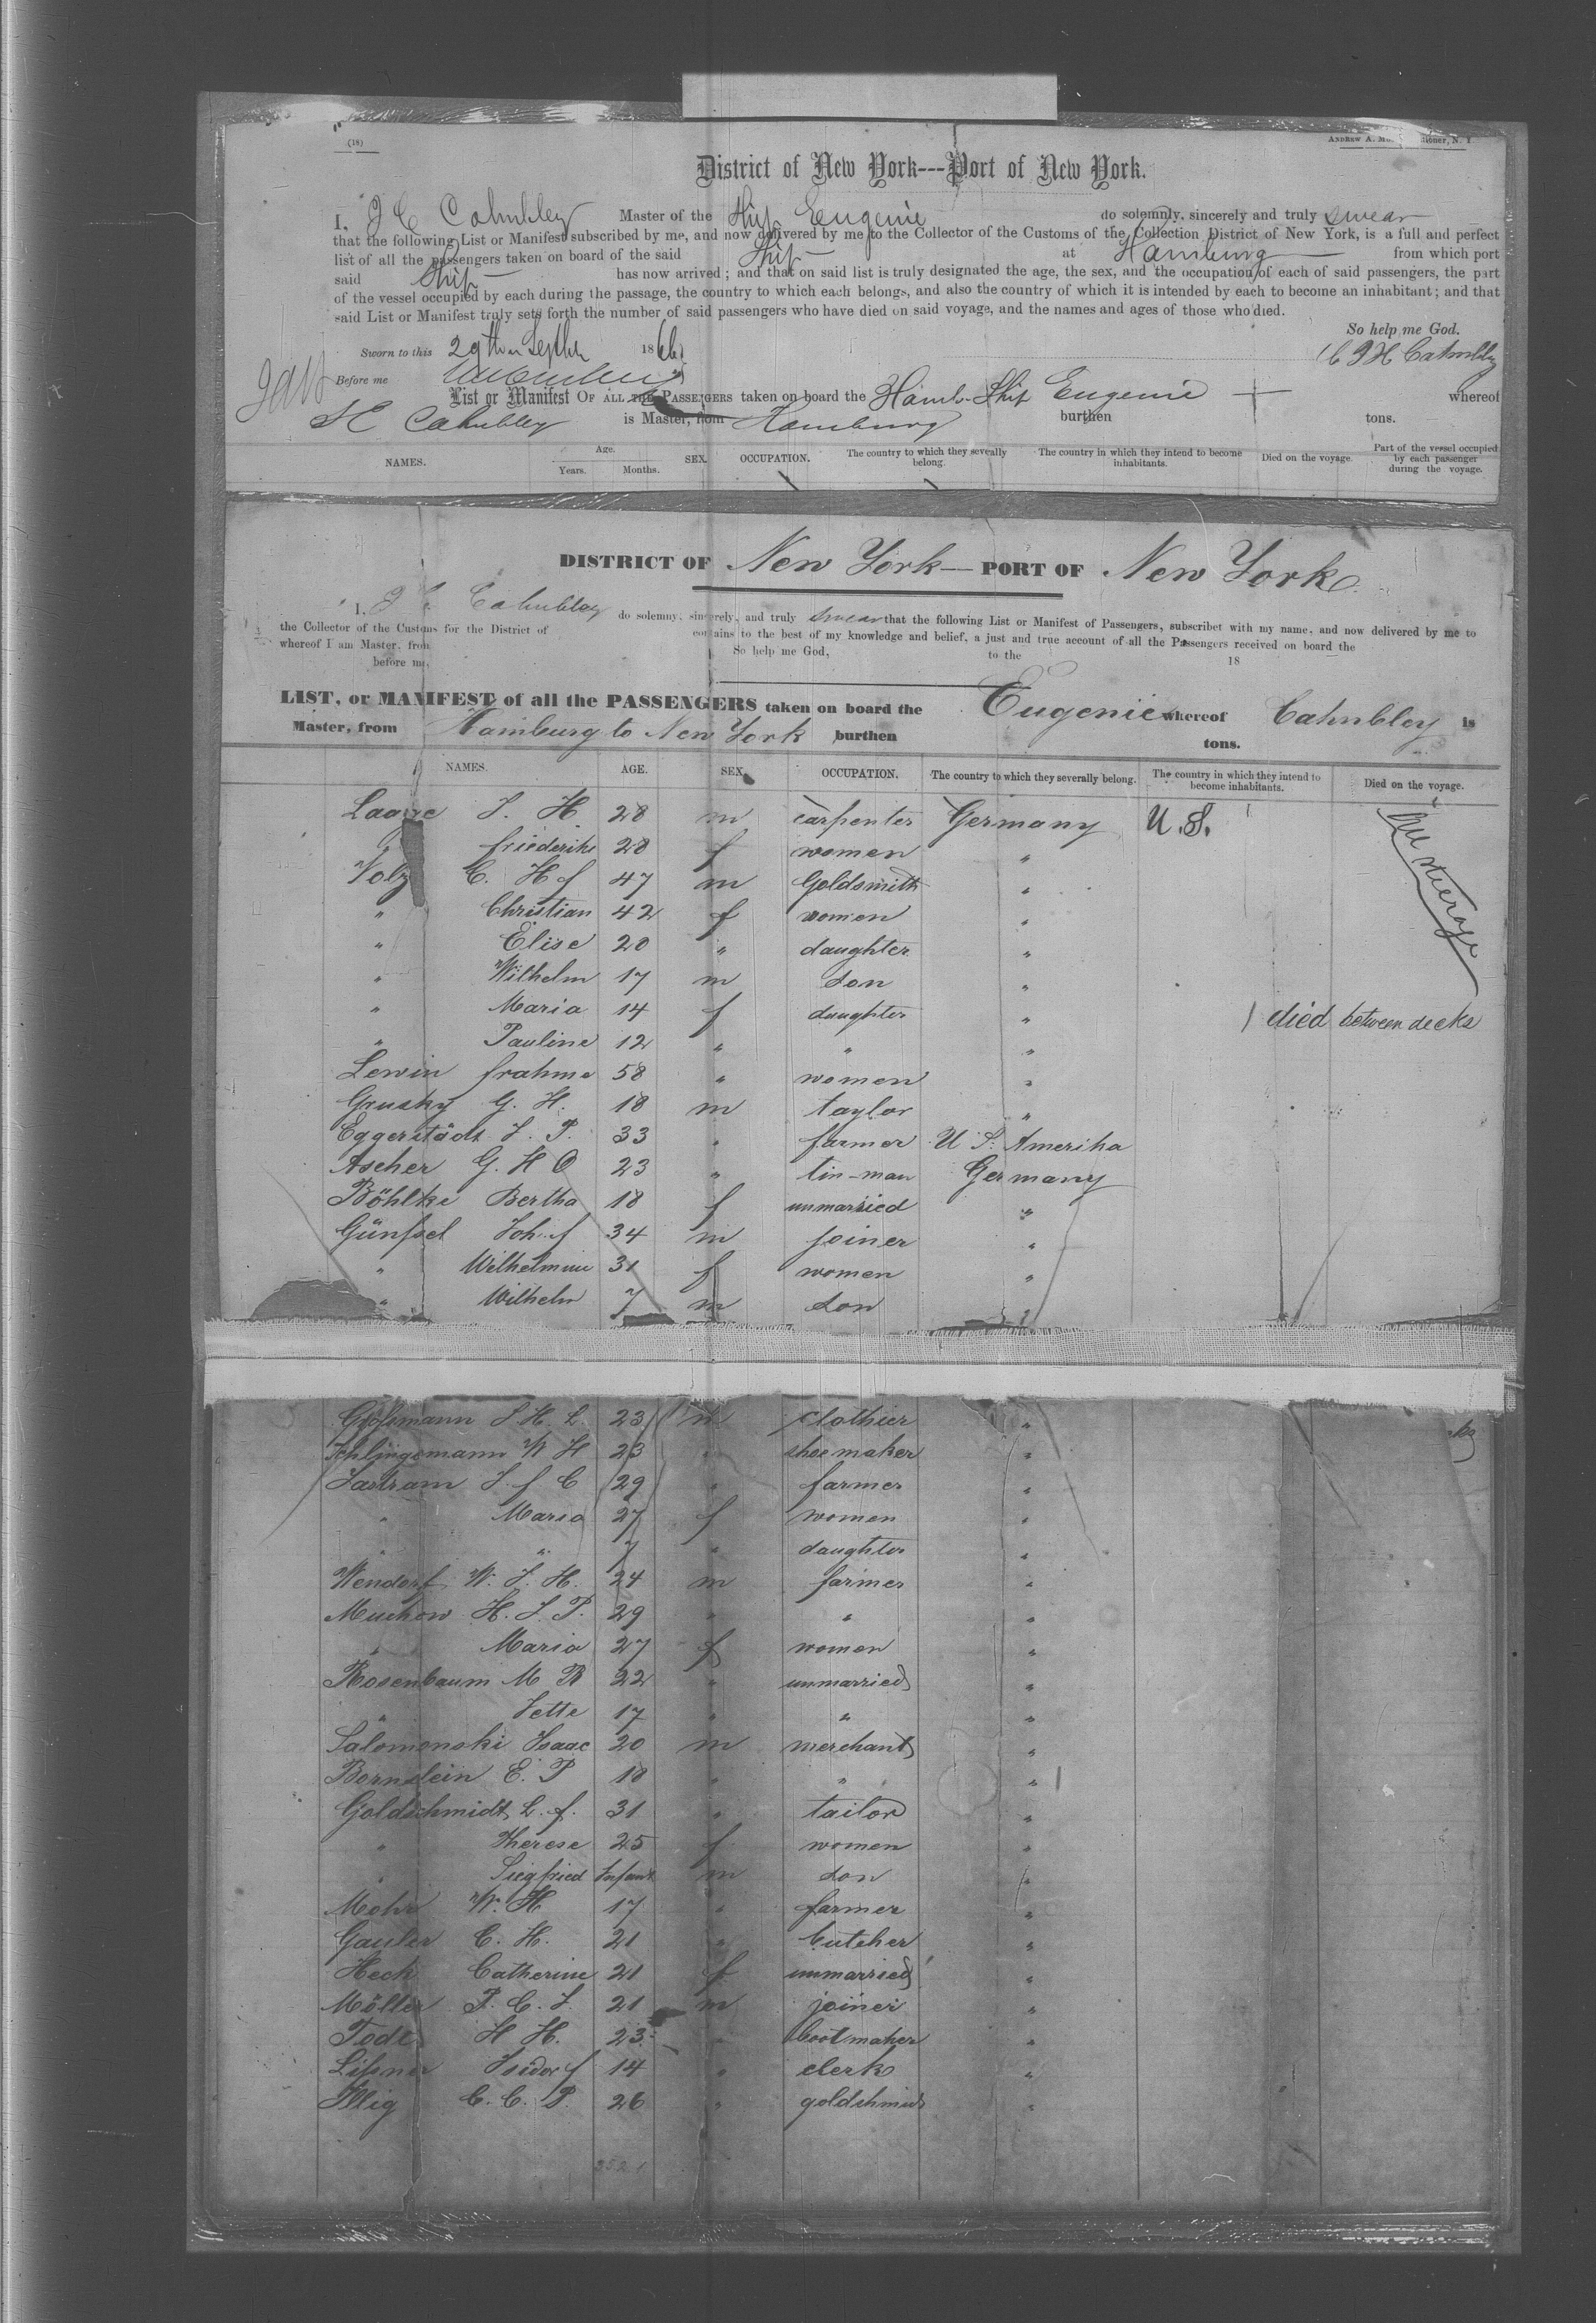 (18)
District of New York---Port of New York.
I, J C Cahnbley Master of the Ship Eugenie do solemnly, sincerely and truly swear
that the following List or Manifest subscribed by me, and now delivered by me to the Collector of the Customs of the Collection District of New York, is a full and perfect
list of all the passengers taken on board of the said Ship at Hamburg from which port
said Ship has now arrived; and that on said list is truly designated the age, the sex, and the occupation of each of said passengers, the part
of the vessel occupied by each during the passage, the country to which each belongs, and also the country of which it is intended by each to become an inhabitant; and that
said List or Manifest truly sets forth the number of said passengers who have died on said voyage, and the names and ages of those who died.
So help me God.
Sworn to this 29th Septbr 1866 Cahnbley
Before me
List or Manifest OF ALL THE PASSENGERS taken on board the Hamb. Ship Eugenie whereof
Cahnbley is Master, from Hamburg burthen tons.
NAMES. Age. Years. Months. SEX. OCCUPATION. The country to which they severally belong. The country in which they intend to become inhabitants. Died on the voyage. Part of the vessel occupied by each passenger during the voyage.
DISTRICT OF New York — PORT OF New York
I, J C Cahnbley do solemny, sincerely, and truly swear that the following List or Manifest of Passengers, subscribet with my name, and now delivered by me to
the Collector of the Customs for the District of contains to the best of my knowledge and belief, a just and true account of all the Passengers received on board the
whereof I am Master, from So help me God, to the 18
before me,
LIST, or MANIFEST of all the PASSENGERS taken on board the Eugenie whereof Cahnbley is
Master, from Hamburg to New York burthen tons.
NAMES. AGE. SEX. OCCUPATION. The country to which they severally belong. The country in which they intend to become inhabitants. Died on the voyage.
Laage J. H. 28 m carpenter Germany U.S.
" friederike 28 f women "
Volz C. H f 47 m Goldsmith "
" Christian 42 f women "
" Elise 20 " daughter "
" Wilhelm 17 m son "
" Maria 14 f daughter " 1 died between decks
" Pauline 12 " " "
Lewin frahme 58 " women "
Grusky G. H. 18 m taylor "
Eggerstädt J. P. 33 " farmer U S. Amerika
Ascher G. H O 23 " tin-man Germany
Böhlke Bertha 18 f unmarried "
Günssel Joh. f 34 m joiner "
" Wilhelmine 31 f women "
" Wilhelm 7 m son
Gossmann J. H. L. 23 m clothier "
Schlingemann W H 23 " shoemaker "
Jastram J. f C 29 " farmer "
" Maria 27 f women "
" " 7 " daughter "
Wendorf W. J. H. 24 m farmer "
Muchow H. J. P. 29 " " "
" Maria 27 f women "
Rosenbaum M R 22 " unmarried "
" Jette 17 " " "
Salomonski Isaac 20 m merchant "
Bornstein E. P 18 " " "
Goldschmidt L. f. 31 " tailor "
" Therese 25 f women "
" Siegfried Infant m son "
Mohr W. H 17 " farmer "
Gauler C. H. 21 " butcher "
Heck Catherine 21 f unmarried "
Möller P. C. J. 21 m joiner "
Tode H H. 23 " bootmaker "
Lissner Isidor f 14 " clerk "
Illig C. C. P. 26 " goldschmid "